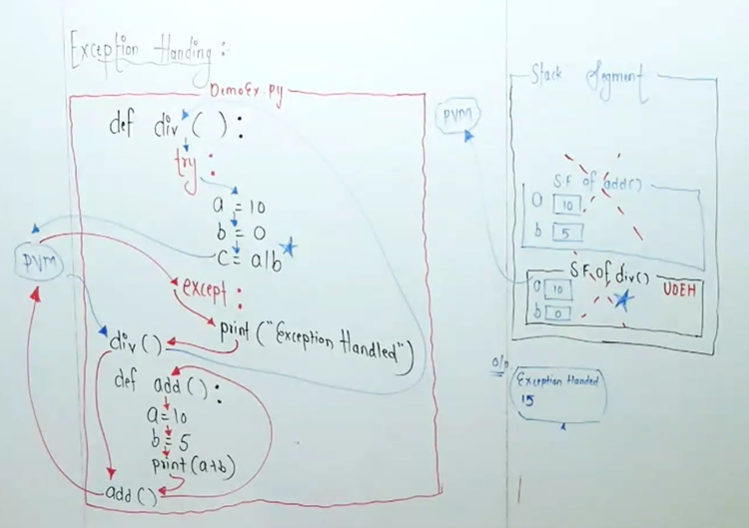 Exception Handing :-
DemoEx.py
def div ( ) :
try :
a = 10
b = 0
c = a/b
except :
print ("Exception Handled")
div ( )
def add ( ) :
a = 10
b = 5
print (a+b)
add ( )
PVM
PVM
Stack Segment
S.F of add ( )
a 10
b 5
S.F. of div ( )
UDEH
a 10
b 0
o/p
Exception Handed
15